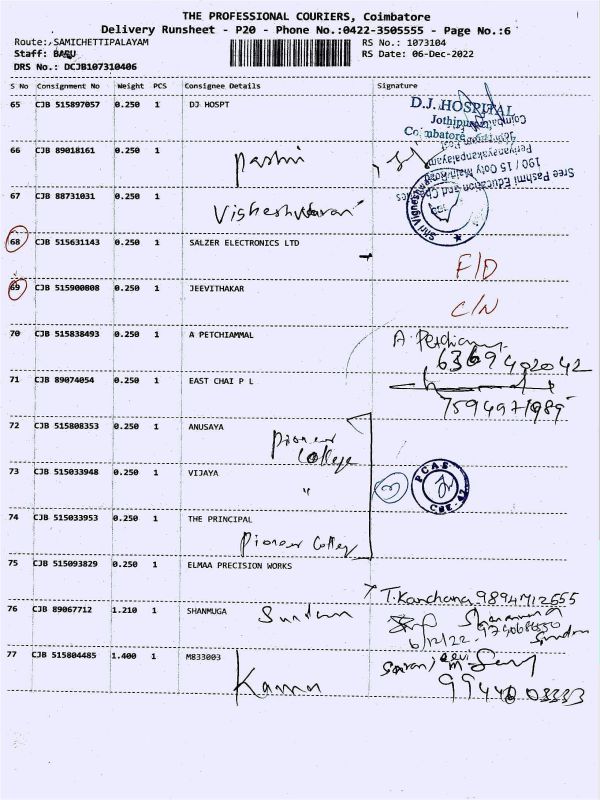 THE PROFESSIONAL COURIERS, Coimbatore
Delivery Runsheet - P20 - Phone No.:0422-3505555 - Page No.:6
Route: SAMICHETTIPALAYAM
RS No.: 1073104
Staff: BABU
RS Date: 06-Dec-2022
DRS No.: DCJB107310406
S No Consignment No Weight PCS Consignee Details Signature
65 CJB 515897057 0.250 1 DJ HOSPT
D.J. HOSPITAL
Jothipuram
Coimbatore
66 CJB 89018161 0.250 1
Periyanaickenpalayam
190 / 15 Coly Main Road
Sree Pashmi Education and
67 CJB 88731031 0.250 1
Shri Vigneshwara
68 CJB 515631143 0.250 1 SALZER ELECTRONICS LTD
F/D
69 CJB 515900808 0.250 1 JEEVITHAKAR
C/N
70 CJB 515838493 0.250 1 A PETCHIAMMAL
A. Petchiammal
6369402042
71 CJB 89074054 0.250 1 EAST CHAI P L
7594971989
72 CJB 515808353 0.250 1 ANUSAYA
Pioneer
College
73 CJB 515033948 0.250 1 VIJAYA
"
3
P C A S
CBE-47
74 CJB 515033953 0.250 1 THE PRINCIPAL
Pioneer College
75 CJB 515093829 0.250 1 ELMAA PRECISION WORKS
T. Kanchana 9894712555
76 CJB 89067712 1.210 1 SHANMUGA
Sundam
6/12/22
77 CJB 515804485 1.400 1 M833003
Kannan